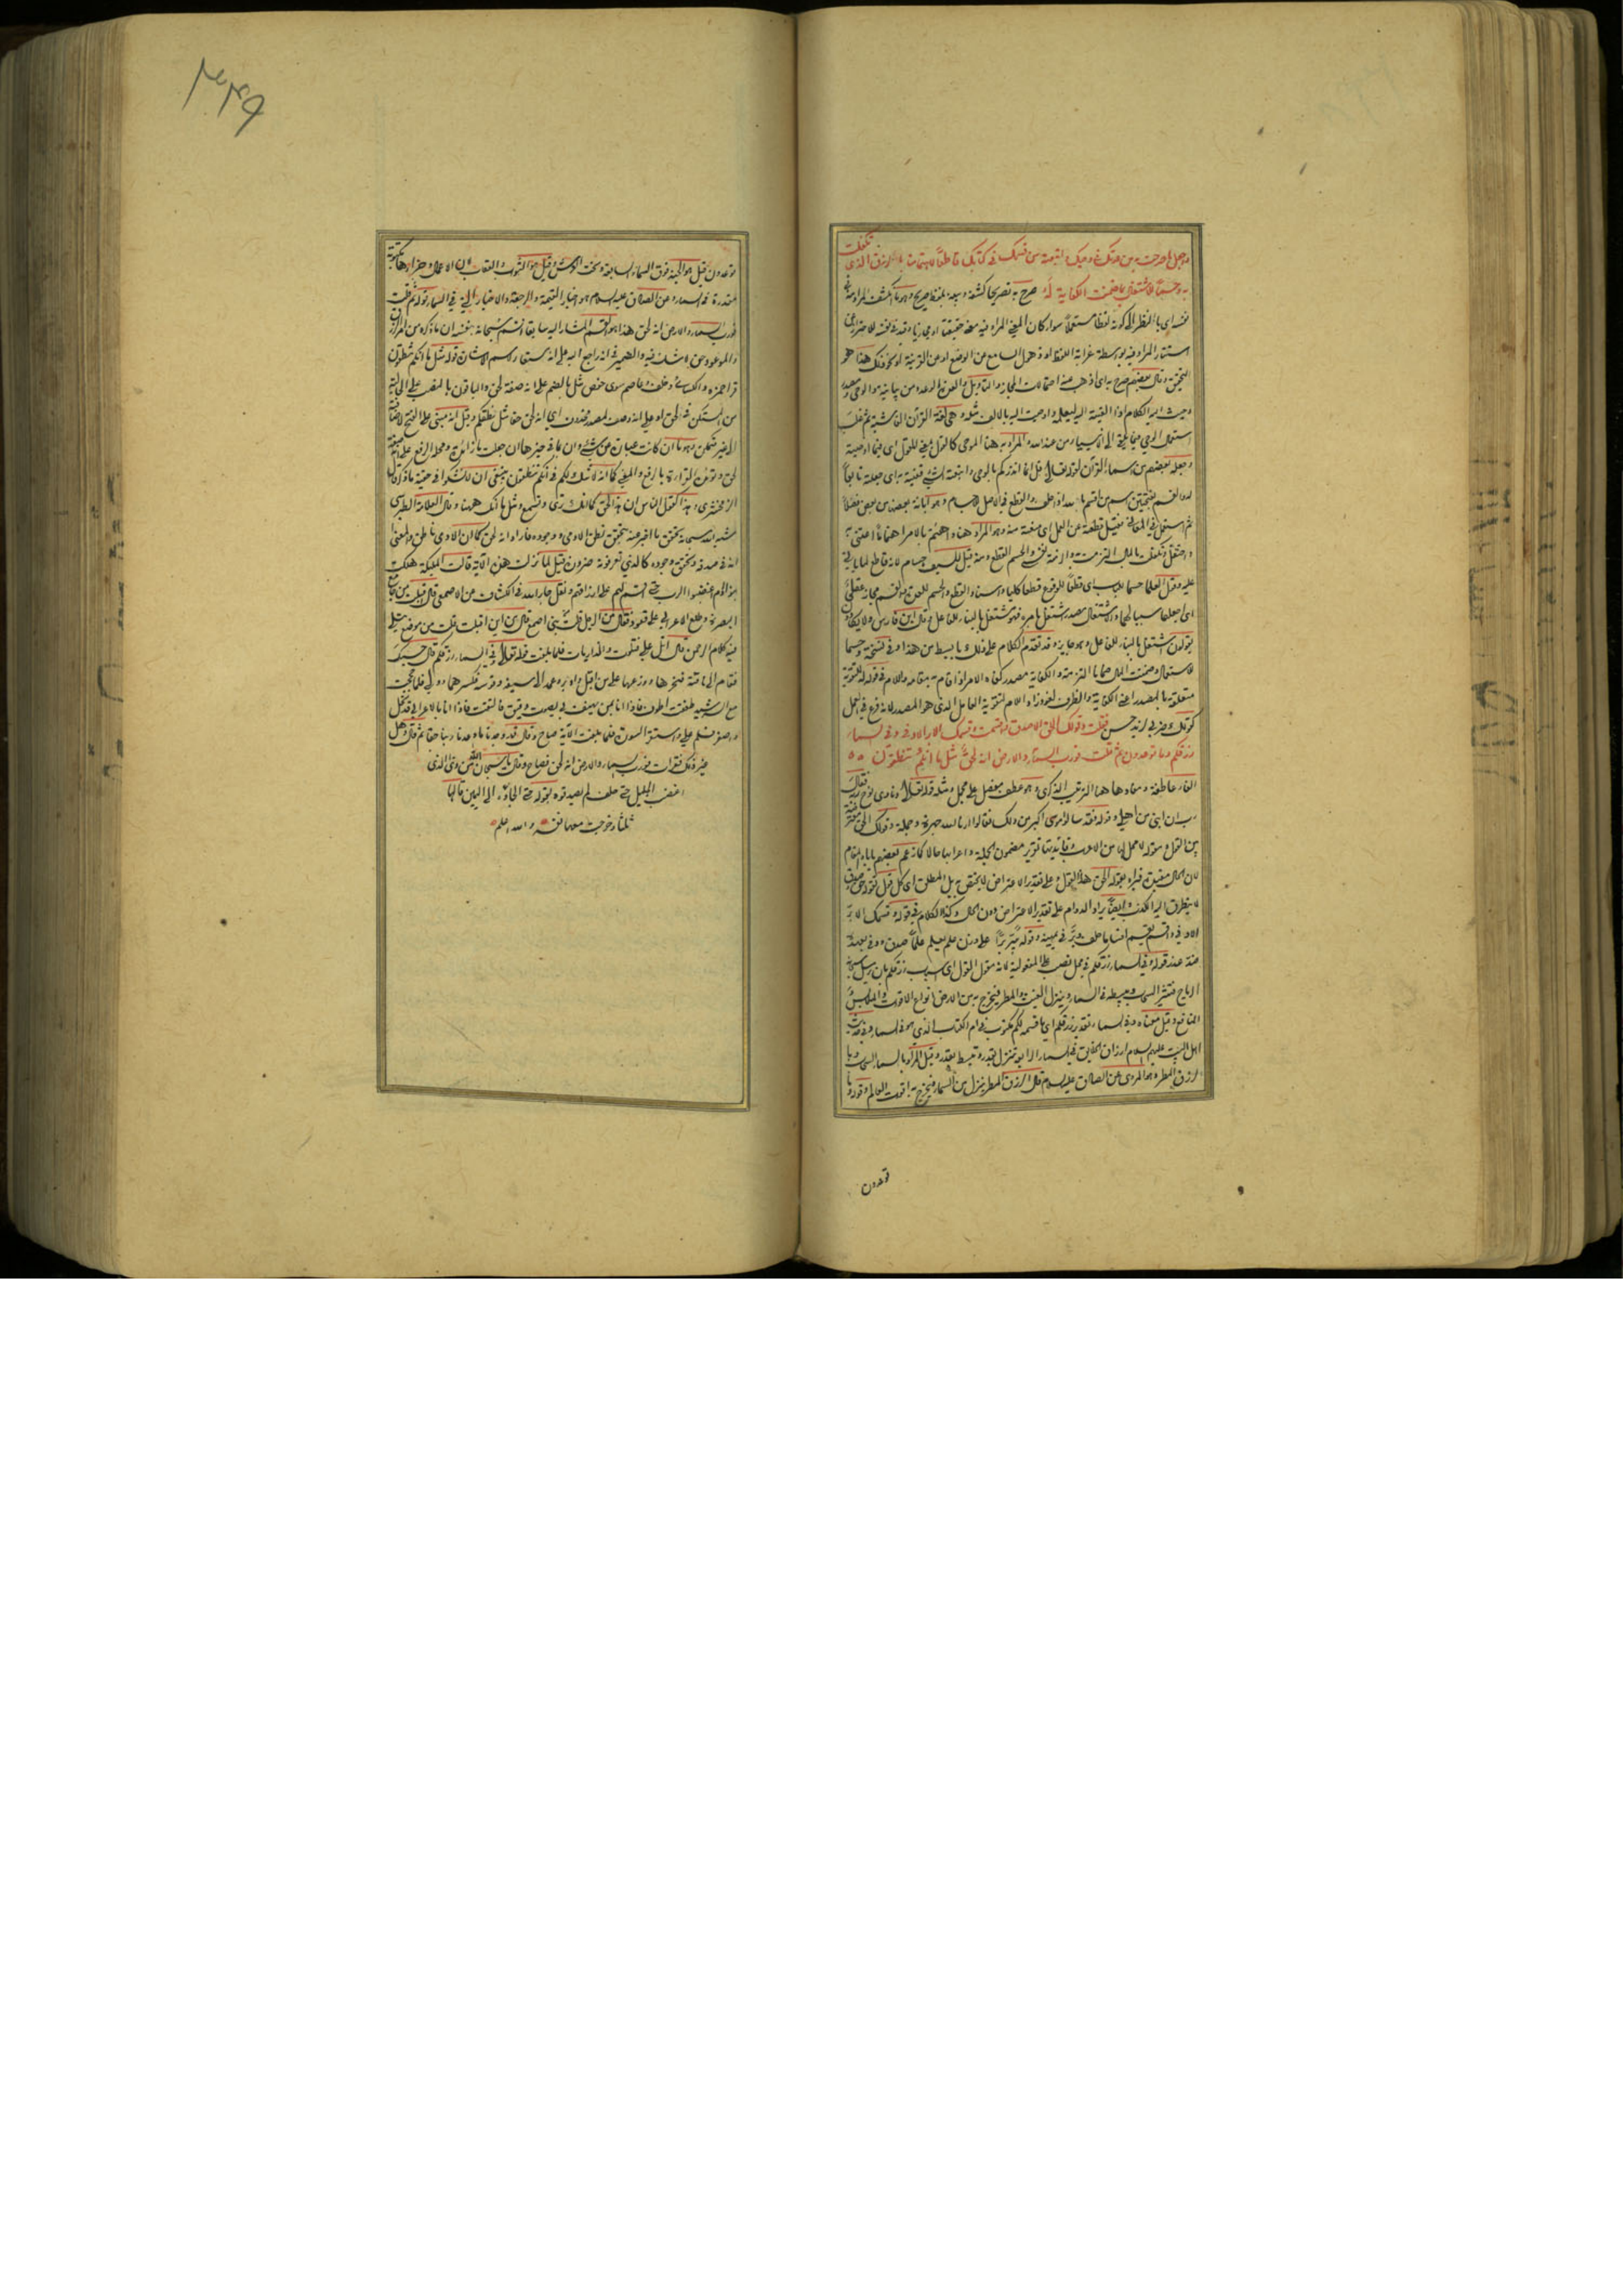 واجعل ما صرحت به من عدتك في وحيك واتبعته من قسمك في كتابك قاطعا لاهتمامنا بالرزق الذي تكفلت
به وحسما للاشتغال بما ضمنت الكفاية له صرح به تصريحا كشفه وبينه بلفظ صريح وهو ما انكشف المراد منه في
نفسه اي بالنظر الى كونه لفظا مستعملا سواء كان المعنى المراد فيه معنى حقيقيا او مجازيا وقيد في نفسه للاحتراز عن
استتار المراد فيه بواسطة غرابة اللفظ او ذهول السامع عن الوضع او عن القرينة او نحو ذلك هذا هو
التحقيق وقال بعضهم صرح به اي اذهب عنه احتمالات المجاز والتأويل
وحيت اليه الكلام اذا القيته اليه ليعلمه واوحيت اليه بالالف مثله وهي لغة القرآن الفاشية ثم غلب
استعمال الوحي فيما يلقى الى الانبياء من عند الله والمراد به هنا الموحى كالقول بمعنى المقول اي فيما اوحيته
وجعله بعضهم من اسماء القرآن لقوله تعالى قل انما انذركم بالوحي واتبعته الشيء
القسم بفتحتين اسم من اقسم بالله اذا حلف والقطع في الاصل
ثم استعمل في المعاني فقيل قطعه عن العمل اي منعه منه وهو المراد هنا واهتم بالامر اهتماما اعتنى به
واحتفل وتكفلت بالمال التزمت به والزمته نفسي والحسم القطع ومنه قيل للسيف حسام لانه قاطع لما يأتي
عليه وقول العلماء حسما للباب اي قطعا للوقوع قطعا كليا واسناد القطع والحسم للعدة والقسم مجاز عقلي
اي اجعلهما سببا لهما والاشتغال مصدر اشتغل بامره فهو مشتغل بالبناء للفاعل وقال ابن فارس ولا يكادون
يقولون اشتغل بالبناء للفاعل وهو جايز وقد تقدم الكلام على ذلك بابسط من هذا وفي نسخة وحسما
للاشتغال وضمنت المال ضمانا التزمته والكفاية مصدر كفاه الامر اذا قام به مقامه واللام في قوله له للتقوية
متعلقة بالمصدر اعني الكفاية والظرف لغو زاد اللام لتقوية العامل الذي هو المصدر لانه فرع في العمل
كقولك ضربي لزيد حسن فقلت وقولك الحق الاصدق واقسمت وقسمك الابر الاوفى وفي السماء
رزقكم وما توعدون ثم قلت فورب السماء والارض انه لحق مثل ما انكم تنطقون
الفاء عاطفة ومفادها هنا الترتيب الذكري وهو عطف مفصل على مجمل ومثله قوله تعالى ونادى نوح ربه فقال
رب ان ابني من اهلي وقوله فقد سألوا موسى اكبر من ذلك فقالوا ارنا الله جهرة وجملة وقولك الحق معترضة
بين القول ومقوله لا محل لها من الاعراب وفائدتها تقرير مضمون الجملة واعرابها حالا كما زعم بعضهم يأباه المقام
لان الحال مقيدة
لا يتطرق اليه الكذب وايضا يراد الدوام على تقدير الاعتراض دون الحال وكذا الكلام في قوله وقسمك الابر
الاوفى واقسم يقسم اقساما حلف وبر في يمينه
منه عند قوله وفي السماء رزقكم في محل نصب على المفعولية لانه مقول القول اي اسباب رزقكم بان يرسل سبحانه
الرياح فتثير السحاب ويبسطه في السماء وينزل الغيث والمطر فيخرج به من الارض انواع الاقوات والملابس
المنافع وقيل معناه وفي السماء تقدير رزقكم اي ما قسمه لكم مكتوب في ام الكتاب الذي هو في السماء
اهل البيت عليهم السلام ارزاق الخلايق في السماء الرابعة تنزل بقدر وتبسط بقدر وقيل المراد بالسماء السحاب وبا
لرزق المطر وهو المروي عن الصادق عليه السلام قال الرزق المطر ينزل من السماء فيخرج به اقوات العالم وقوله وما
توعدون
توعدون قيل هو الجنة فوق السماء السابعة وتحت العرش وقيل هو الثواب والعقاب لان الاعمال وجزاءها مكتوبة
مقدرة في السماء وعن الصادق عليه السلام هو اخبار القيمة والرجعة والاخبار التي في السماء قوله ثم قلت
فورب السماء والارض انه لحق هذا هو القسم المشار اليه سابقا اقسم سبحانه بنفسه ان ما ذكره من امر الرزق
والموعود حق لا شك فيه والضمير في انه راجع اليه على انه مستعار لاسم الاشارة قوله مثل ما انكم تنطقون
قرأ حمزة والكسائي وخلف وعاصم سوى حفص مثل بالضم على انه صفة لحق والباقون بالنصب على الحالية
من المستكن في لحق او على انه وصف لمصدر محذوف اي انه لحق حقا مثل نطقكم وقيل انه مبني على الفتح لاضافته
الى غير متمكن وهو ما ان كانت عبارة عن شيء وان بما في حيزها ان جعلت ما زائدة ومحله الرفع على انه صفة
لحق
الزمخشري وهذا كقول الناس ان هذا لحق كما انك ترى وتسمع ومثل ما انك ههنا وقال العلامة الطبرسي
شبه الله سبحانه تحقق ما اخبر عنه بتحقق نطق الادمي ووجوده فاراد انه لحق كما ان الادمي ناطق والمعنى
انه في صدقه وتحقق وجوده كالذي تعرفونه ضرورة قيل لما نزلت هذه الآية قالت الملئكة هلكت
بنو آدم اغضبوا الرب حتى اقسم لهم على ارزاقهم ونقل جار الله في الكشاف عن الاصمعي قال اقبلت من جامع
البصرة وطلع الاعرابي على قعود فقال من الرجل قلت من بني اصمع قال من اين اقبلت قلت من موضع يتلى
فيه كلام الرحمن قال اتل علي فتلوت والذاريات فلما بلغت قوله تعالى وفي السماء رزقكم قال حسبك
فقام الى ناقته فنحرها ووزعها على من اقبل وادبر وعمد الى سيفه وقوسه فكسرهما وولى فلما حججت
مع الرشيد طفقت اطوف فاذا انا بمن يهتف بي بصوت دقيق فالتفت فاذا انا بالاعرابي قد نحل
واصفر فسلم علي واستقرأ السورة فلما بلغت الآية صاح وقال قد وجدنا ما وعدنا ربنا حقا ثم قال وهل
غير ذلك فقرأت فورب السماء والارض انه لحق فصاح وقال يا سبحان الله من ذي الذي
اغضب الجليل حتى حلف لم يصدقوه بقوله حتى الجأوه الى اليمين قالها
ثلثا وخرجت معها نفسه والله اعلم